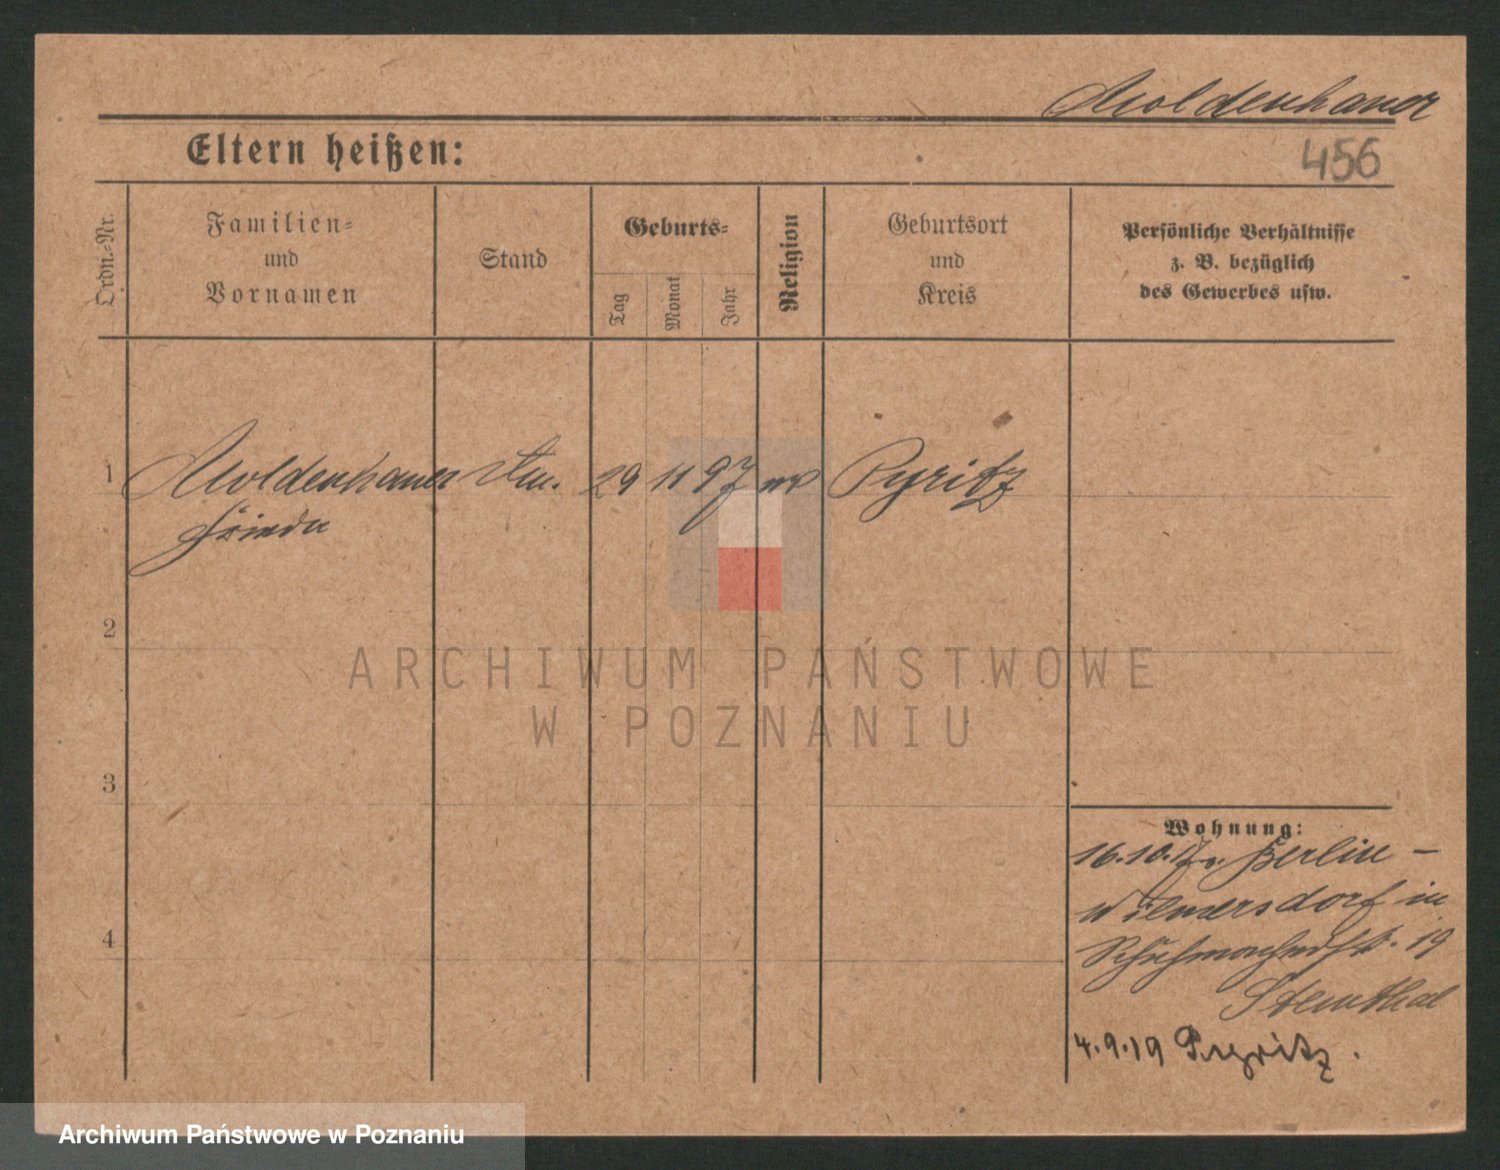 Moldenhauer
Eltern heißen:
456
Ordn.-Nr.
Familien-
und
Vornamen
Stand
Geburts-
Tag
Monat
Jahr
Religion
Geburtsort
und
Kreis
Persönliche Verhältnisse
z. B. bezüglich
des Gewerbes usw.
1 Moldenhauer 29 11 97 Pyritz
Frieda
2
3
4
Wohnung:
16.10.17 v. Berlin -
Wilmersdorf in
Schuhmacherstr. 19
4.9.19 Pyritz.
ARCHIWUM PAŃSTWOWE
W POZNANIU
Archiwum Państwowe w Poznaniu